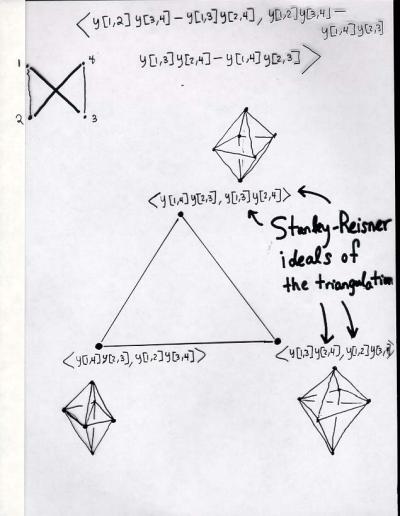 < y[1,2] y[3,4] - y[1,3] y[2,4], y[1,2] y[3,4] -
y[1,4] y[2,3]
y[1,3] y[2,4] - y[1,4] y[2,3] >
1 4
2 3
< y[1,4] y[2,3], y[1,3] y[2,4] >
Stanley-Reisner
ideals of
the triangulation
< y[1,4] y[2,3], y[1,2] y[3,4] >
< y[1,3] y[2,4], y[1,2] y[3,4] >